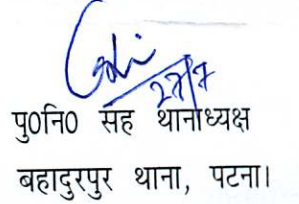 27/7
पु०नि० सह थानाध्यक्ष
बहादुरपुर थाना, पटना।